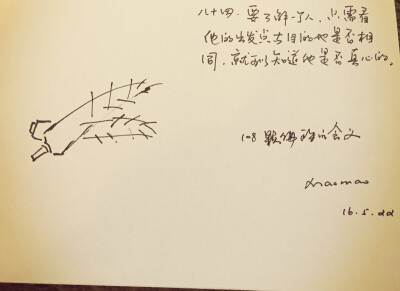 八十四. 要了解一个人, 只需看
他的出发点与目的地是否相
同, 就可以知道他是否真心的。
108颗佛珠的含义
xiaomao
16.5.22